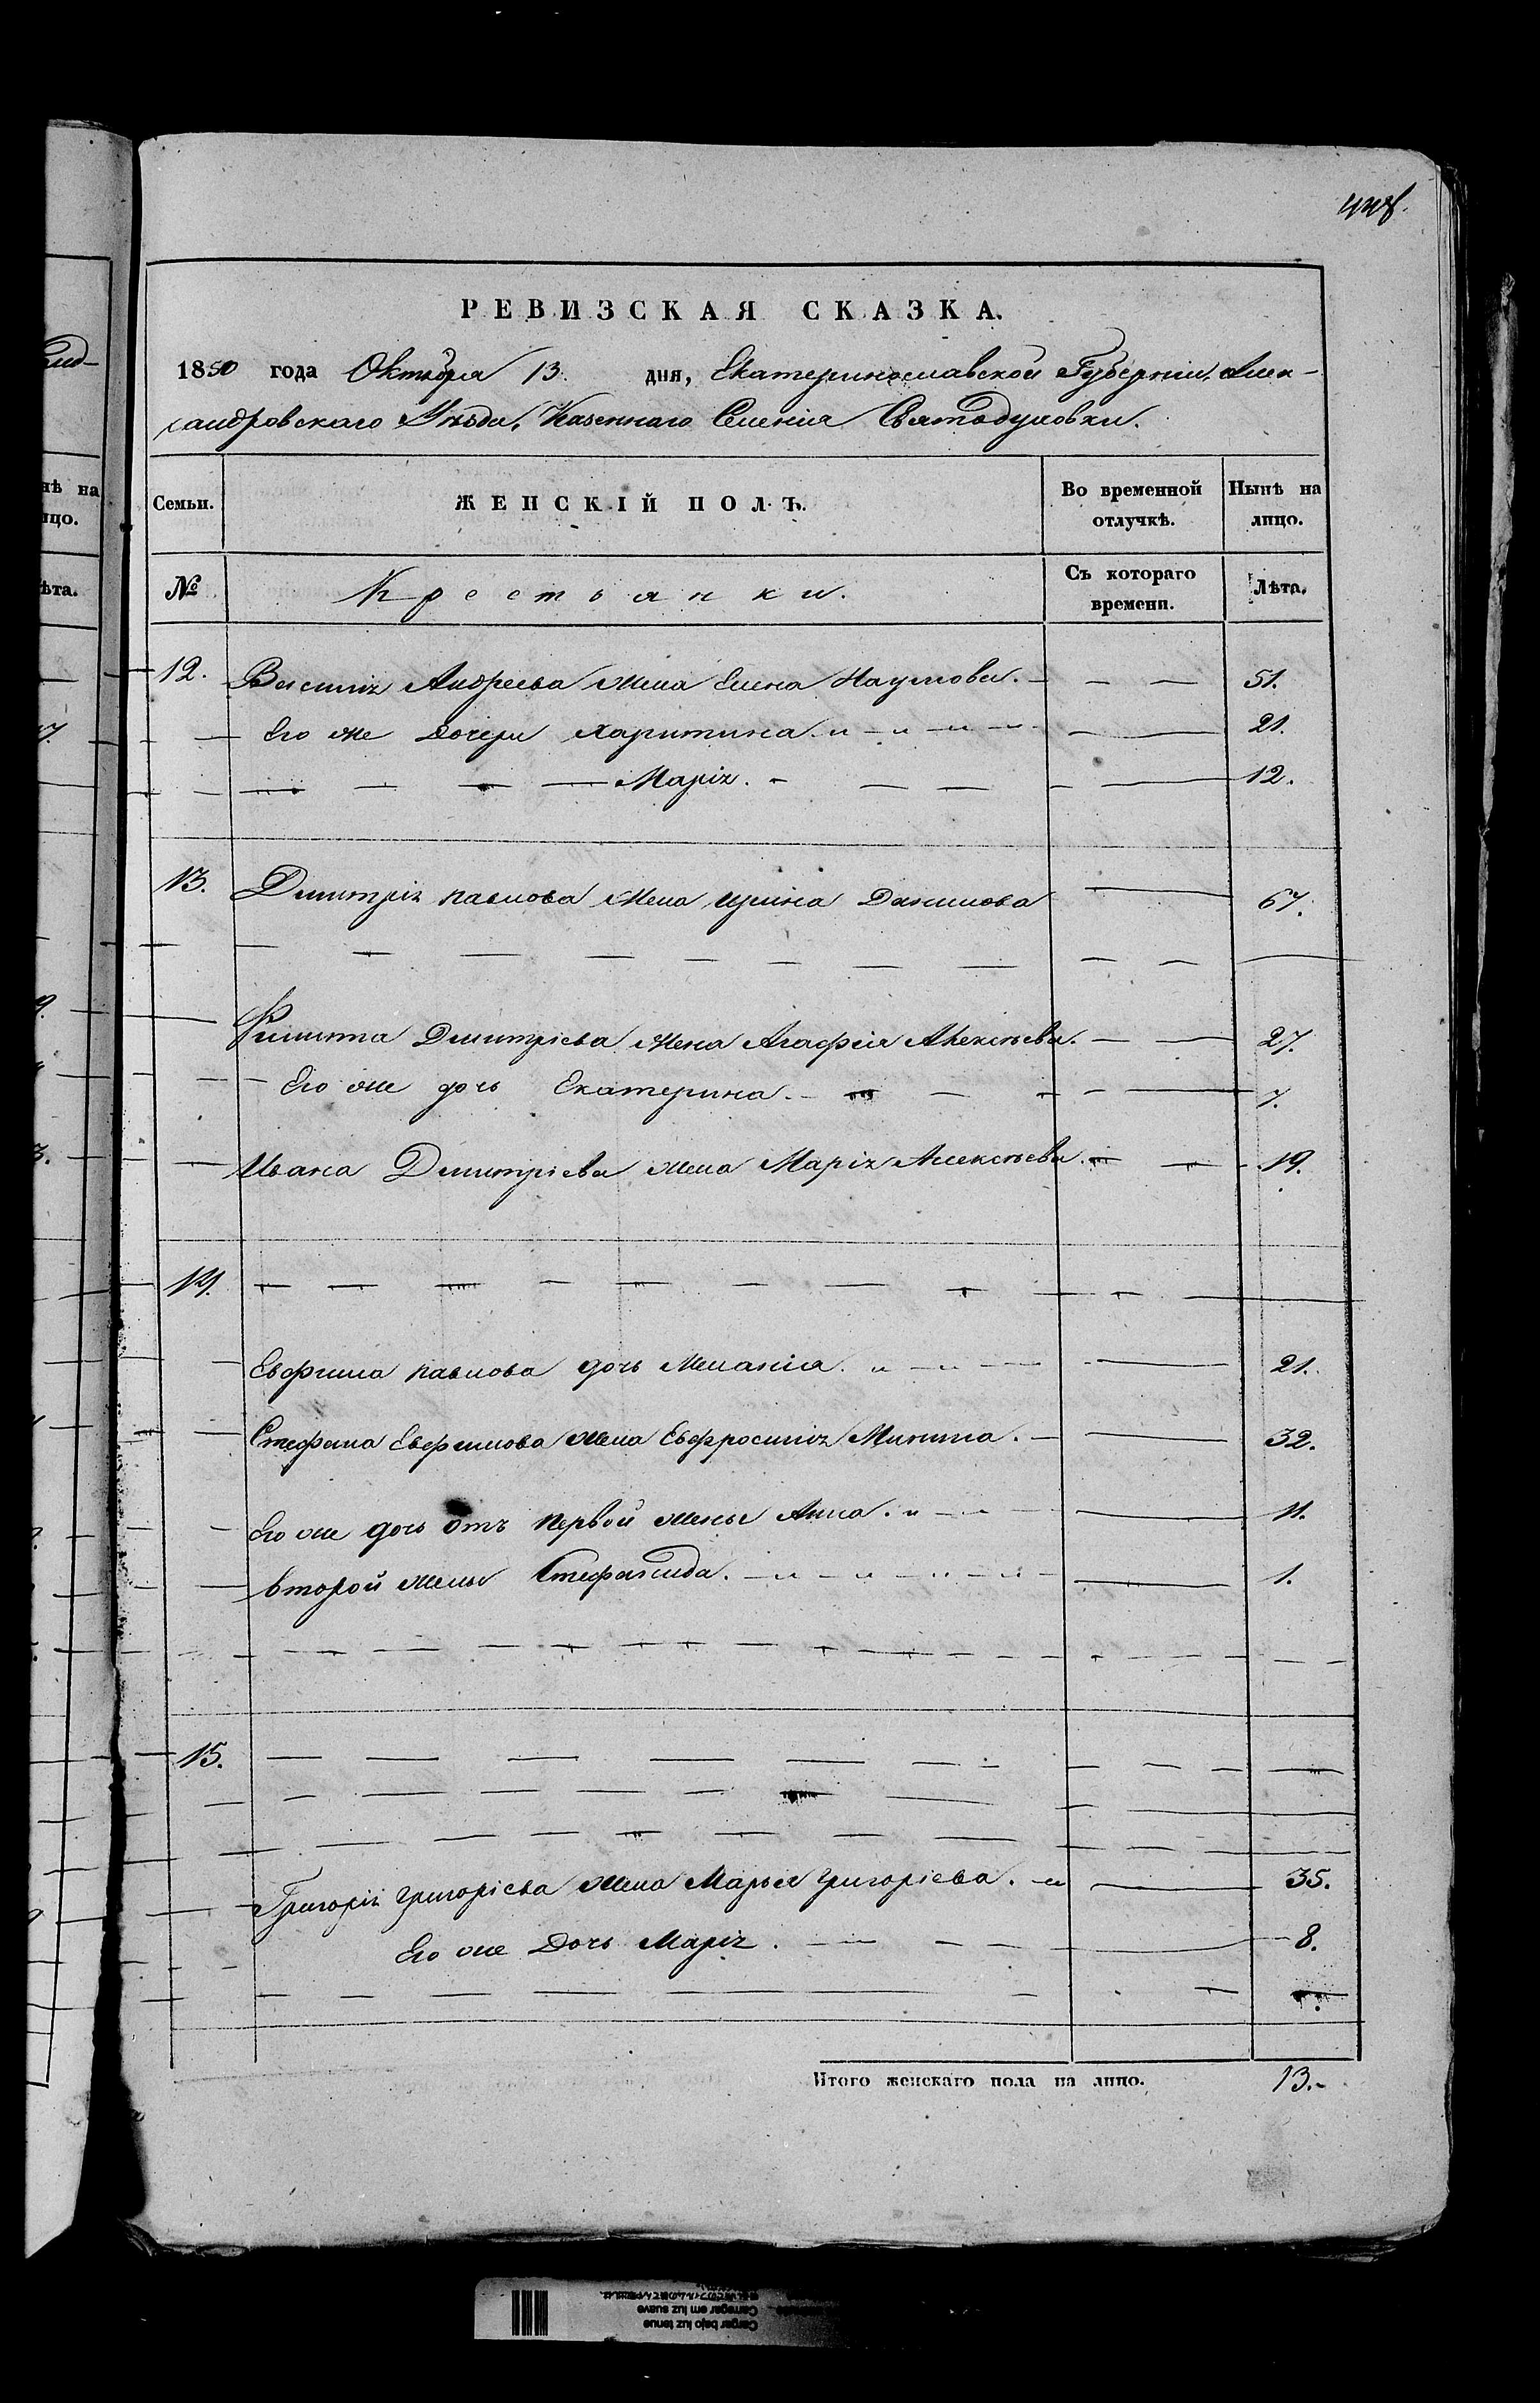 448.
РЕВИЗСКАЯ СКАЗКА.
1850 года Октября 13. дня, Екатеринославской Губерніи, Алек-
сандровскаго Уѣзда, Казеннаго Селенія Святодуховки.
Семьи. ЖЕНСКІЙ ПОЛЪ. Во временной отлучкѣ. Нынѣ на лицо.
№ Крестьянки. Съ котораго времени. Лѣта.
12. Василія Андреева жена Елена Наумова. 51.
Его же дочери Харитина. 21.
Марія. 12.
13. Дмитрія павлова жена ирина Данилова 67.
Филипа Дмитріева жена Агафія Алексѣева. 27.
Его же дочь Екатерина. 7.
Ивана Дмитріева жена Марія Алексѣева. 19.
14.
Евфима павлова дочь Меланія. 21.
Стефана Евфимова жена Евфросинія Минина. 32.
Его же дочь отъ первой жены Анна. 11.
второй жены Стефанида. 1.
15.
Григорія григоріева жена Марья григоріева. 35.
Его же Дочь Марія. 8.
Итого женскаго пола на лицо. 13.
нѣ на
ицо.
ѣта.
Cargar bajo luz tenue
Carregar em luz suave